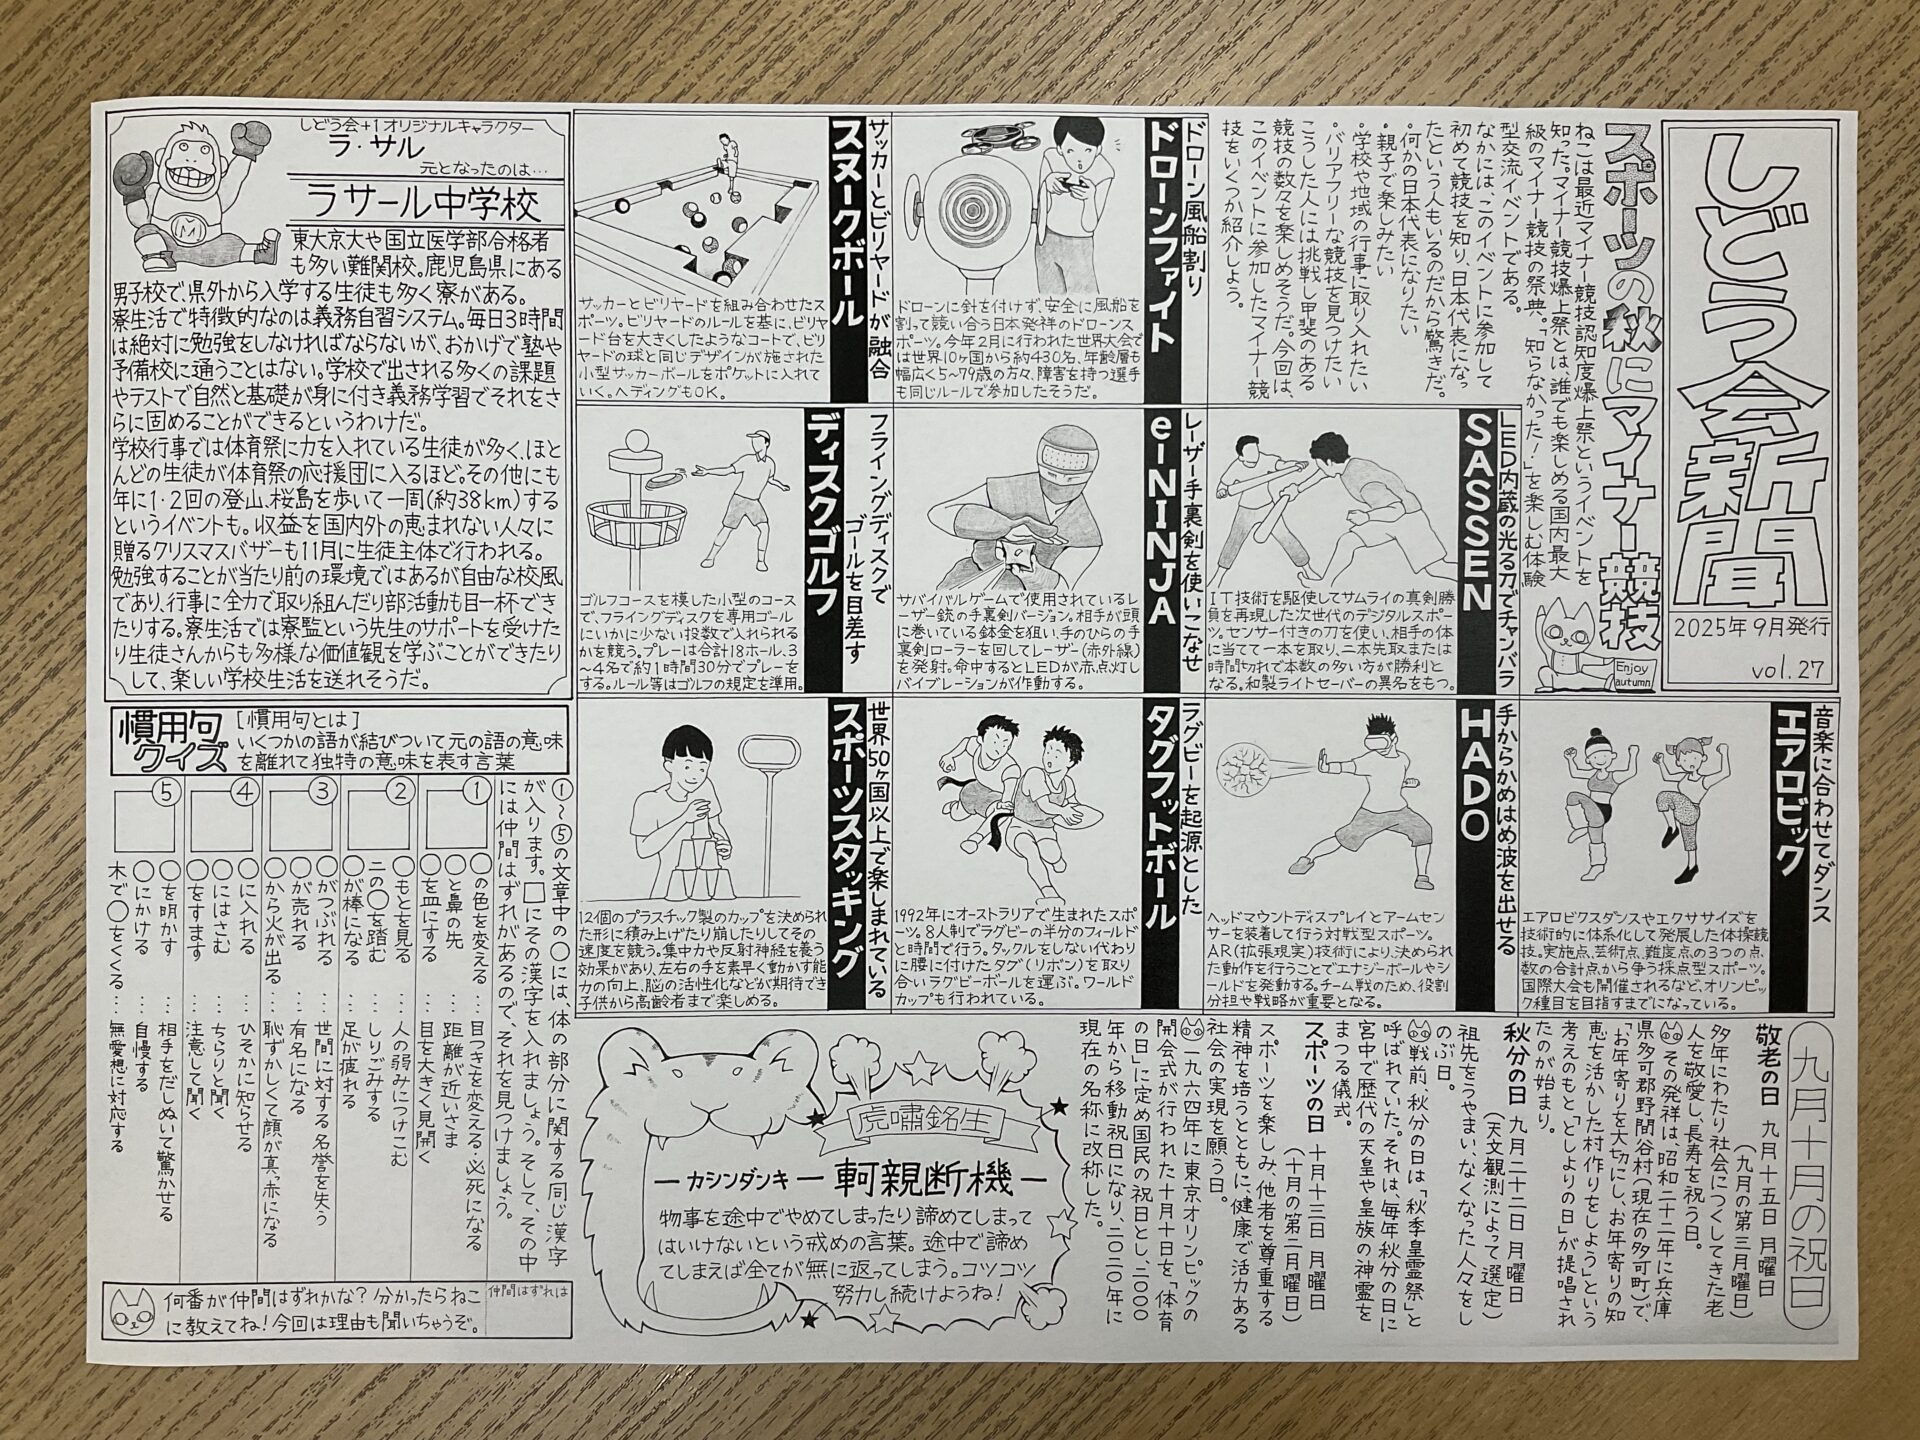 しどう会新聞
2025年9月発行
vol.27
スポーツの秋にマイナー競技
ねこは最近マイナー競技認知度爆上祭というイベントを
知った。マイナー競技爆上祭とは、誰でも楽しめる国内最大
級のマイナー競技の祭典。「知らなかった!」を楽しむ体験
型交流イベントである。
なかには、このイベントに参加して
初めて競技を知り、日本代表になっ
たという人もいるのだから驚きだ。
・何かの日本代表になりたい
・親子で楽しみたい
・学校や地域の行事に取り入れたい
・バリアフリーな競技を見つけたい
こうした人には挑戦し甲斐のある
競技の数々を楽しめそうだ。今回は、
このイベントに参加したマイナー競
技をいくつか紹介しよう。
Enjoy
autumn
ドローン風船割り
ドローンファイト
ドローンに針を付けず、安全に風船を
割って競い合う日本発祥のドローンス
ポーツ。今年2月に行われた世界大会で
は世界10ヶ国から約430名、年齢層も
幅広く5~79歳の方々、障害を持つ選手
も同じルールで参加したそうだ。
サッカーとビリヤードが融合
スヌークボール
サッカーとビリヤードを組み合わせたス
ポーツ。ビリヤードのルールを基に、ビリヤ
ード台を大きくしたようなコートで、ビリ
ヤードの球と同じデザインが施された
小型サッカーボールをポケットに入れて
いく。ヘディングもOK。
LED内蔵の光る刀でチャンバラ
SASSEN
IT技術を駆使してサムライの真剣勝
負を再現した次世代のデジタルスポー
ツ。センサー付きの刀を使い、相手の体
に当てて一本を取り、二本先取または
時間切れで本数の多い方が勝利と
なる。和製ライトセーバーの異名をもつ。
レーザー手裏剣を使いこなせ
e-NINJA
サバイバルゲームで使用されているレ
ーザー銃の手裏剣バージョン。相手が頭
に巻いている鉢金を狙い、手のひらの手
裏剣ローラーを回してレーザー(赤外線)
を発射。命中するとLEDが赤点灯し
バイブレーションが作動する。
フライングディスクで
ゴールを目差す
ディスクゴルフ
ゴルフコースを模した小型のコース
で、フライングディスクを専用ゴール
にいかに少ない投数で入れられる
かを競う。プレーは合計18ホール、3
~4名で約1時間30分でプレーを
する。ルール等はゴルフの規定を準用。
音楽に合わせてダンス
エアロビック
エアロビクスダンスやエクササイズを
技術的に体系化して発展した体操競
技。実施点、芸術点、難度点の3つの点
数の合計点から争う採点型スポーツ。
国際大会も開催されるなど、オリンピッ
ク種目を目指すまでになっている。
手からかめはめ波を出せる
HADO
ヘッドマウントディスプレイとアームセン
サーを装着して行う対戦型スポーツ。
AR(拡張現実)技術により、決められ
た動作を行うことでエナジーボールやシ
ールドを発動する。チーム戦のため、役割
分担や戦略が重要となる。
ラグビーを起源とした
タグフットボール
1992年にオーストラリアで生まれたスポ
ーツ。8人制でラグビーの半分のフィールド
と時間で行う。タックルをしない代わり
に腰に付けたタグ(リボン)を取り
合いラグビーボールを運ぶ。ワールド
カップも行われている。
世界50ヶ国以上で楽しまれている
スポーツスタッキング
12個のプラスチック製のカップを決められ
た形に積み上げたり崩したりしてその
速度を競う。集中力や反射神経を養う
効果があり、左右の手を素早く動かす能
力の向上、脳の活性化などが期待でき
子供から高齢者まで楽しめる。
しどう会+1オリジナルキャラクター
ラ・サル
元となったのは…
ラサール中学校
東大京大や国立医学部合格者
も多い難関校。鹿児島県にある
男子校で、県外から入学する生徒も多く寮がある。
寮生活で特徴的なのは義務自習システム。毎日3時間
は絶対に勉強をしなければならないが、おかげで塾や
予備校に通うことはない。学校で出される多くの課題
やテストで自然と基礎が身に付き義務学習でそれをさ
らに固めることができるというわけだ。
学校行事では体育祭に力を入れている生徒が多く、ほと
んどの生徒が体育祭の応援団に入るほど。その他にも
年に1・2回の登山、桜島を歩いて一周(約38km)する
というイベントも。収益を国内外の恵まれない人々に
贈るクリスマスバザーも11月に生徒主体で行われる。
勉強することが当たり前の環境ではあるが自由な校風
であり、行事に全力で取り組んだり部活動も目一杯でき
たりする。寮生活では寮監という先生のサポートを受けた
り生徒さんからも多様な価値観を学ぶことができたり
して、楽しい学校生活を送れそうだ。
九月十月の祝日
敬老の日 九月十五日 月曜日
(九月の第三月曜日)
多年にわたり社会につくしてきた老
人を敬愛し、長寿を祝う日。
その発祥は、昭和二十二年に兵庫
県多可郡野間谷村(現在の多可町)で、
「お年寄りを大切にし、お年寄りの知
恵を活かした村作りをしよう」という
考えのもと「としよりの日」が提唱され
たのが始まり。
秋分の日 九月二十二日 月曜日
(天文観測によって選定)
祖先をうやまい、なくなった人々をし
のぶ日。
戦前、秋分の日は「秋季皇霊祭」と
呼ばれていた。それは、毎年秋分の日に
宮中で歴代の天皇や皇族の神霊を
まつる儀式。
スポーツの日 十月十三日 月曜日
(十月の第二月曜日)
スポーツを楽しみ、他者を尊重する
精神を培うとともに、健康で活力ある
社会の実現を願う日。
一九六四年に東京オリンピックの
開会式が行われた十月十日を「体育
の日」に定め国民の祝日とし、二〇〇〇
年から移動祝日になり、二〇二〇年に
現在の名称に改称した。
虎嘯銘生
ーカシンダンキー 軻親断機ー
物事を途中でやめてしまったり諦めてしまって
はいけないという戒めの言葉。途中で諦め
てしまえば全てが無に返ってしまう。コツコツ
努力し続けようね!
慣用句
クイズ
[慣用句とは]
いくつかの語が結びついて元の語の意味
を離れて独特の意味を表す言葉
①~⑤の文章中の○には、体の部分に関する同じ漢字
が入ります。□にその漢字を入れましょう。そして、その中
には仲間はずれがあるので、それを見つけましょう。
①
○の色を変える…目つきを変える・必死になる
○と鼻の先…距離が近いさま
○を皿にする…目を大きく見開く
②
○もとを見る…人の弱みにつけこむ
二の○を踏む…しりごみする
○が棒になる…足が疲れる
③
○がつぶれる…世間に対する名誉を失う
○が売れる…有名になる
○から火が出る…恥ずかしくて顔が真っ赤になる
④
○に入れる…ひそかに知らせる
○にはさむ…ちらりと聞く
○をすます…注意して聞く
⑤
○を明かす…相手をだしぬいて驚かせる
○にかける…自慢する
木で○をくくる…無愛想に対応する
何番が仲間はずれかな?分かったらねこ
に教えてね!今回は理由も聞いちゃうぞ。
仲間はずれは